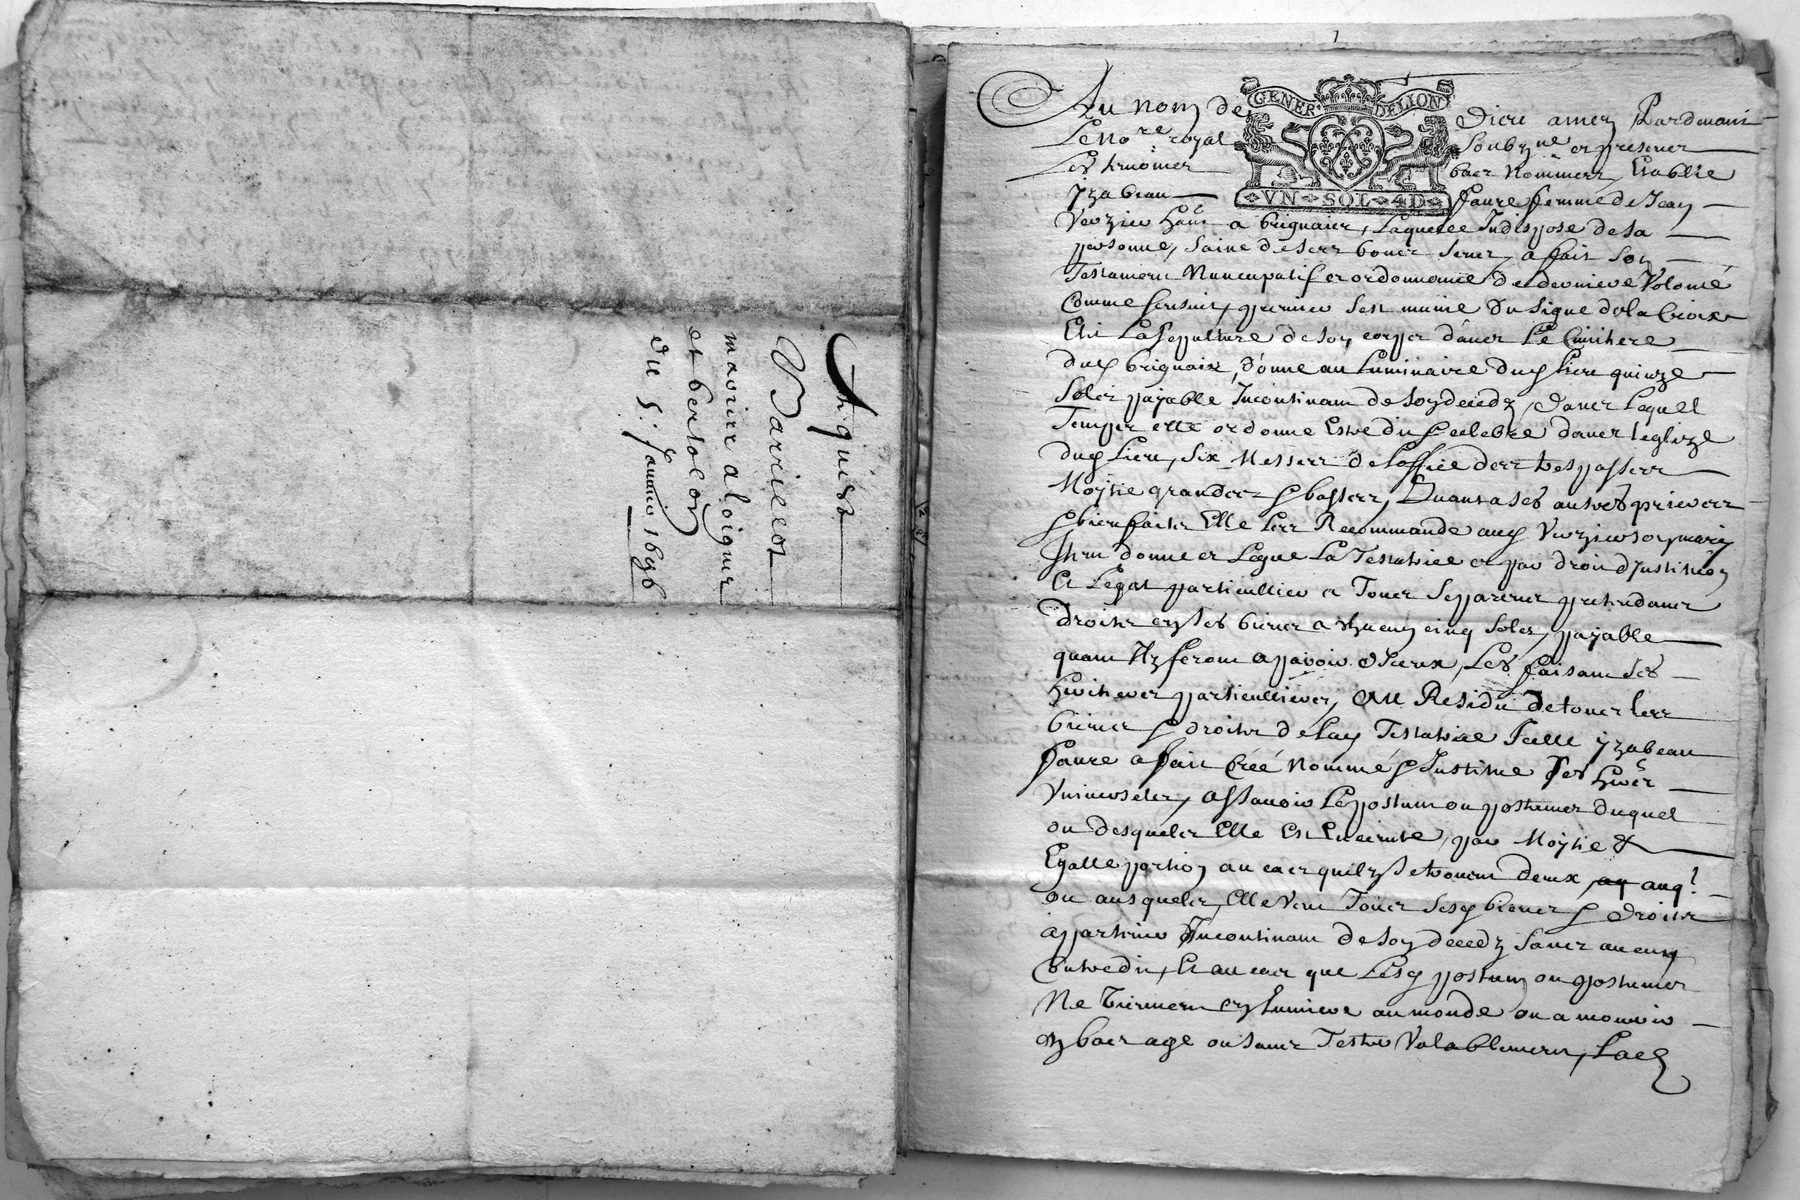 Acquis
Barriellot
et bertolon
du 5. Janvier 1696
1
GENER. DELION
VN SOL 4D
Au nom de Dieu amen Pardevant
Le No.re royal Soubz.ne et presence
Les tesmoins bas Nommes, Establie
yzabeau faure femme de Jean
Verzieu hans a brignais, Laquelle Indispose de sa
personne, saine de ses bons sens, a fait son
Testament Nuncupatif et ordonnance de derniere Volonté
Comme sensuit, premier sest munie du signe de la Croix
Elit La sepulture de son corps dans Le Cimitiere
dud brignais, donne au Luminaire dud Lieu quinze
Solz payable Incontinant de son decedz, dans Lequel
Temps elle ordonne Estre dit & celebré dans leglize
dud Lieu, Six Messes de Loffice des trespasses
Moytie grandes & basses, Quant a ses autres prieres
& bien faits Elle Les Recommande aud Verzieu son mary
Item donne et Legue La Testatrice et par droit dJnstitution
Et Legat particullier a Tous Ses parens pretendans
droits en ses biens a chacun cinq solz, payable
quant Ilz seront apparoir dIceux, Les faisant ses
heritiers particulliers, Au Residu de tous les
biens & droits de Lad Testatrice Icelle yzabeau
faure a fait Créé Nommé & Institue ses hers
Vniverselz, assavoir Le postum ou postumes duquel
ou desquelz Elle Est Enceinte, par Moytie &
Egalle portion au cas quilz se trouvent deux, auql
ou ausquelz, Elle Veut Tous Sesd biens & droits
appartenir Incontinant de son decedz sans aucun
Contredit, Et au cas que Lesd postum ou postumes
Ne Viennent en Lumiere au monde ou a mourir
en bas age ou sans Tester Valablement, Lad